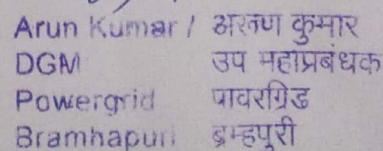 Arun Kumar / अरूण कुमार
DGM उप महाप्रबंधक
Powergrid पावरग्रिड
Bramhapuri ब्रम्हपुरी